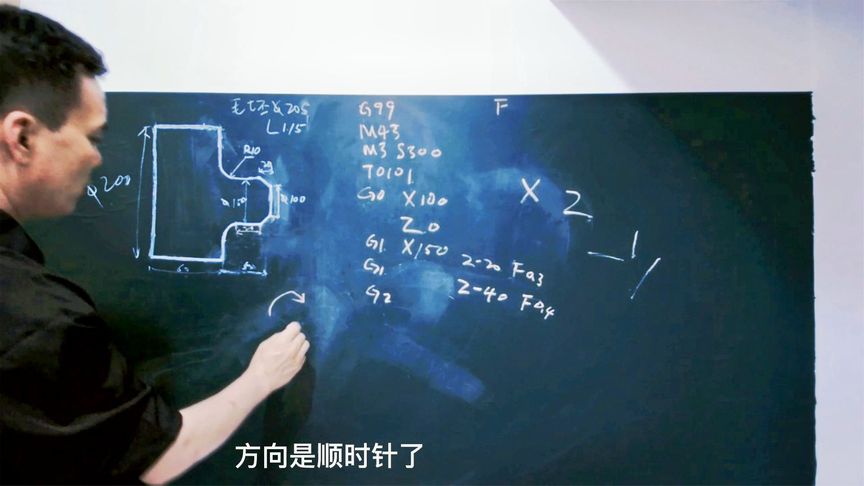 毛坯φ205
L115
G99
M43
M3 S300
T0101
G0 X100
Z0
G1 X150
G1 Z-20 F0.3
G2 Z-40 F0.4
F
X Z
R10
20
φ200
φ100
方向是顺时针了